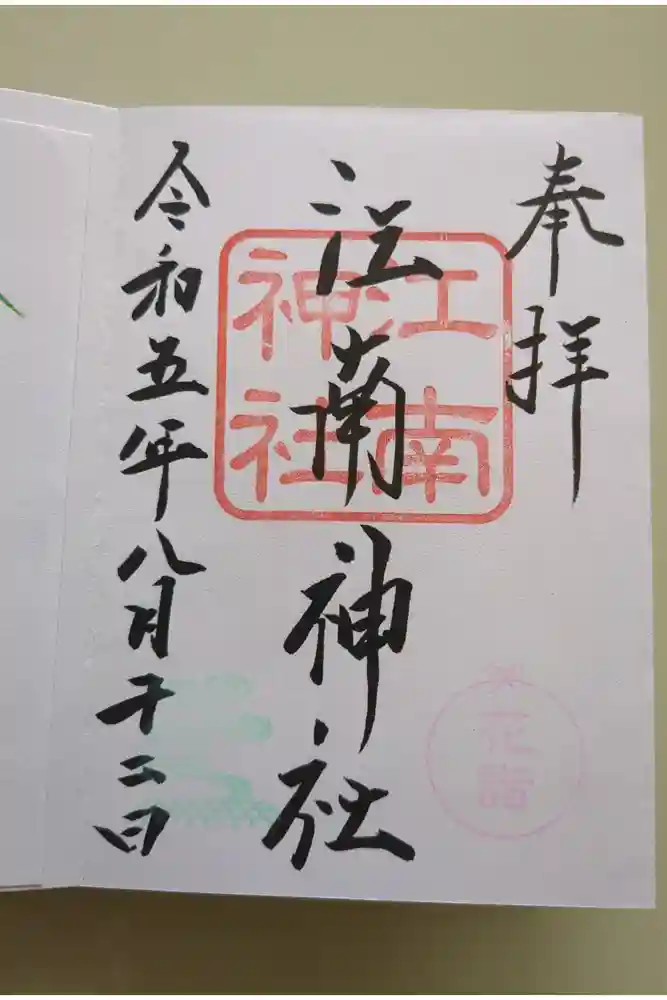 奉拝
江南神社
江南
神社
令和五年八月十二日
花詣